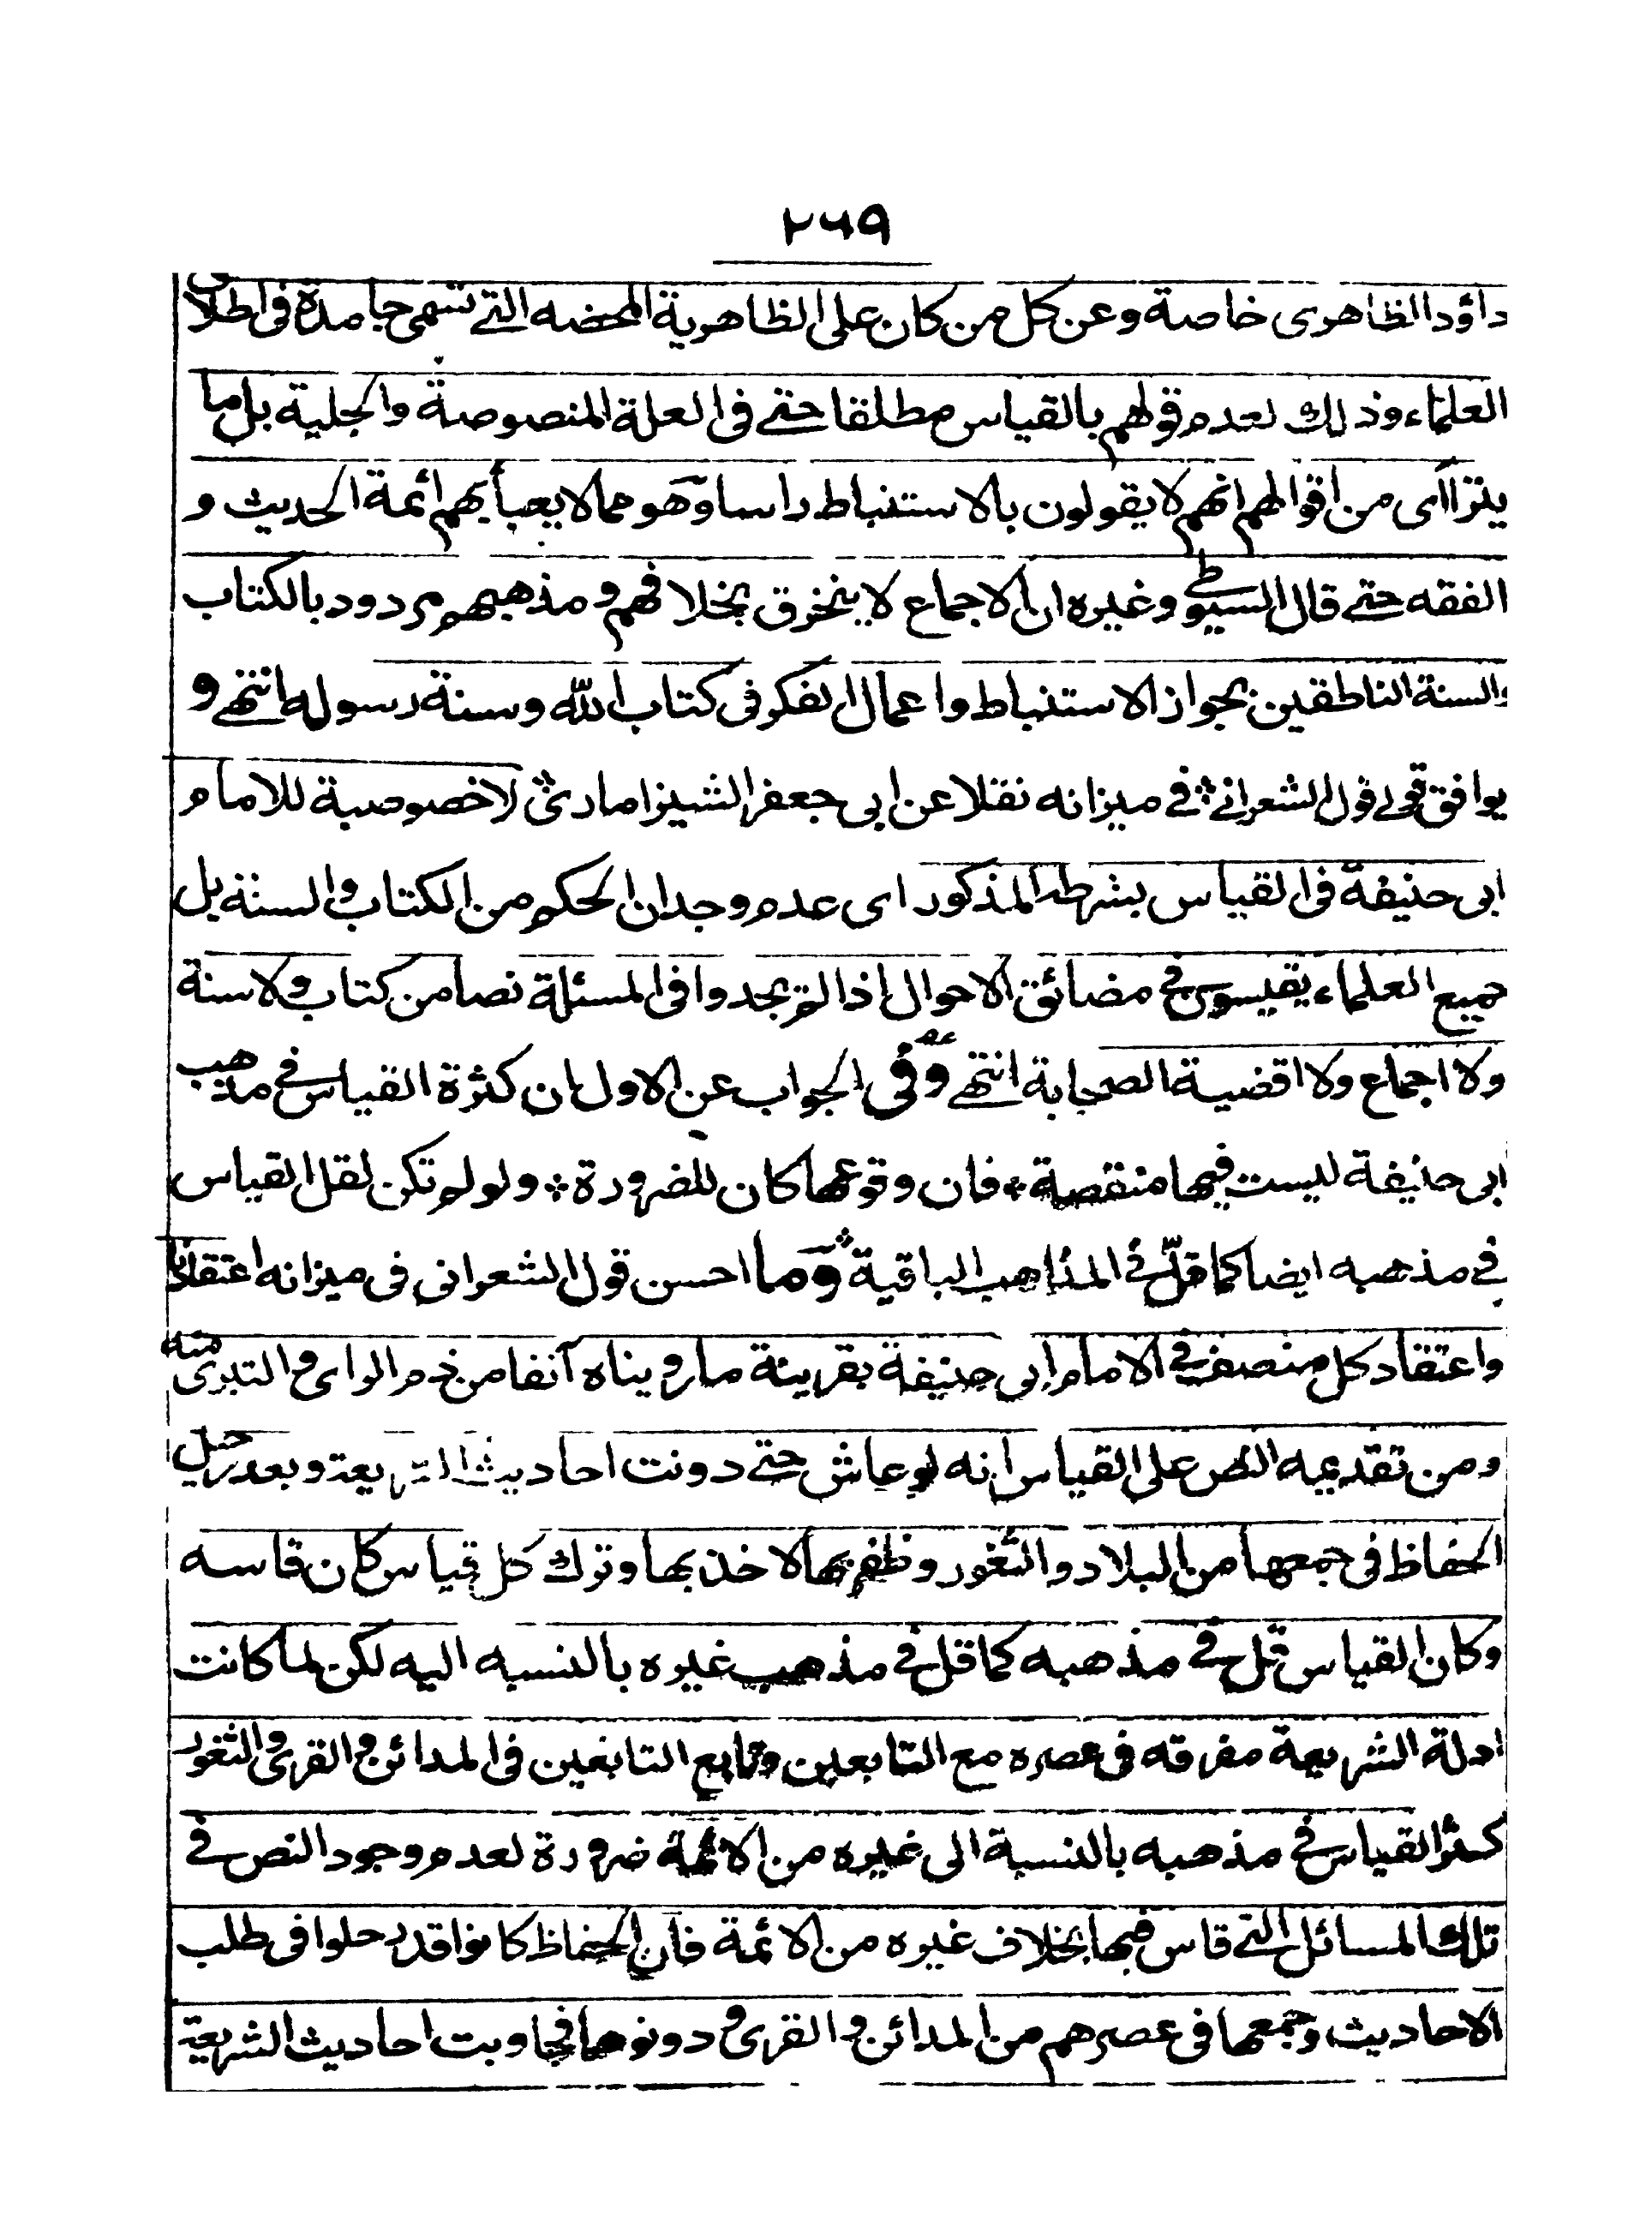 ٢٦٩
داؤد الظاهرى خاصة وعن كل من كان على الظاهرية المحضه التے تسمى جامدة فى اطلاق
العلماء وذلك لعدم قولهم بالقياس مطلقا حتے فى العلة المنصوصة والجلية بل ما
يتراأى من اقوالهم انهم لا يقولون بالاستنباط راسا وهو مما لا يعبأ بهم ائمة الحديث و
الفقه حتے قال السيوطے وغيره ان الاجماع لا ينخرق بخلافهم و مذهبهم مردود بالكتاب
والسنة الناطقين بجواز الاستنباط واعمال الفكر فى كتاب الله وسنة رسوله انتهے و
يوافق قولے قول الشعرانے فے ميزانه نقلا عن ابى جعفر الشيزامارى لا خصوصية للامام
ابى حنيفة فى القياس بشرطه المذكور اى عدم وجدان الحكم من الكتاب والسنة بل
جميع العلماء يقيسون فے مضائق الاحوال اذا لم يجدوا فى المسئلة نصا من كتاب ولا سنة
ولا اجماع ولا اقضية الصحابة انتهے وفى الجواب عن الاول ان كثرة القياس فے مذهب
ابى حنيفة ليست فيها منقصة فان وقوعها كان للضرورة ولو لم تكن لقل القياس
فے مذهبه ايضا كما قلّ فے المذاهب الباقية وما احسن قول الشعرانى فى ميزانه اعتقادنا
واعتقاد كل منصف فے الامام ابى حنيفة بقرينة ما رويناه آنفا من ذم الراى والتبرى منه
ومن تقديمه النص على القياس انه لو عاش حتے دونت احاديث الشريعة وبعد رحيل
الحفاظ فى جمعها من البلاد والثغور وظفر بها لاخذ بها وترك كل قياس كان قاسه
وكان القياس قل فے مذهبه كما قل فے مذهب غيره بالنسبه اليه لكن لما كانت
ادلة الشريعة مفرقه فى عصره مع التابعين وتابع التابعين فى المدائن والقرى والثغور
كثر القياس فے مذهبه بالنسبة الى غيره من الائمة ضرورة لعدم وجود النص فے
تلك المسائل التے قاس فيها بخلاف غيره من الائمة فان الحفاظ كانوا قد رحلوا فى طلب
الاحاديث وجمعها فى عصرهم من المدائن والقرى ودونوها فجاوبت احاديث الشريعة